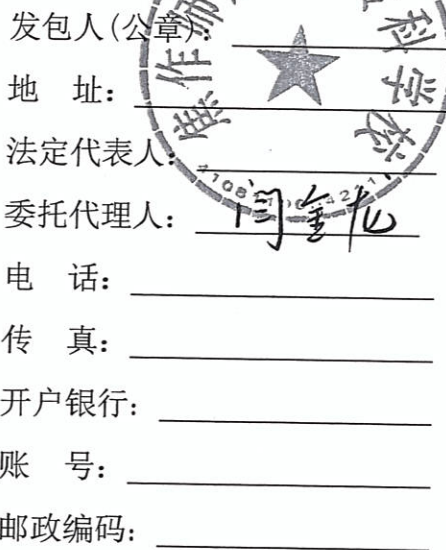 发包人(公章):
地 址:
法定代表人:
委托代理人: 闫金龙
电 话:
传 真:
开户银行:
账 号:
邮政编码: